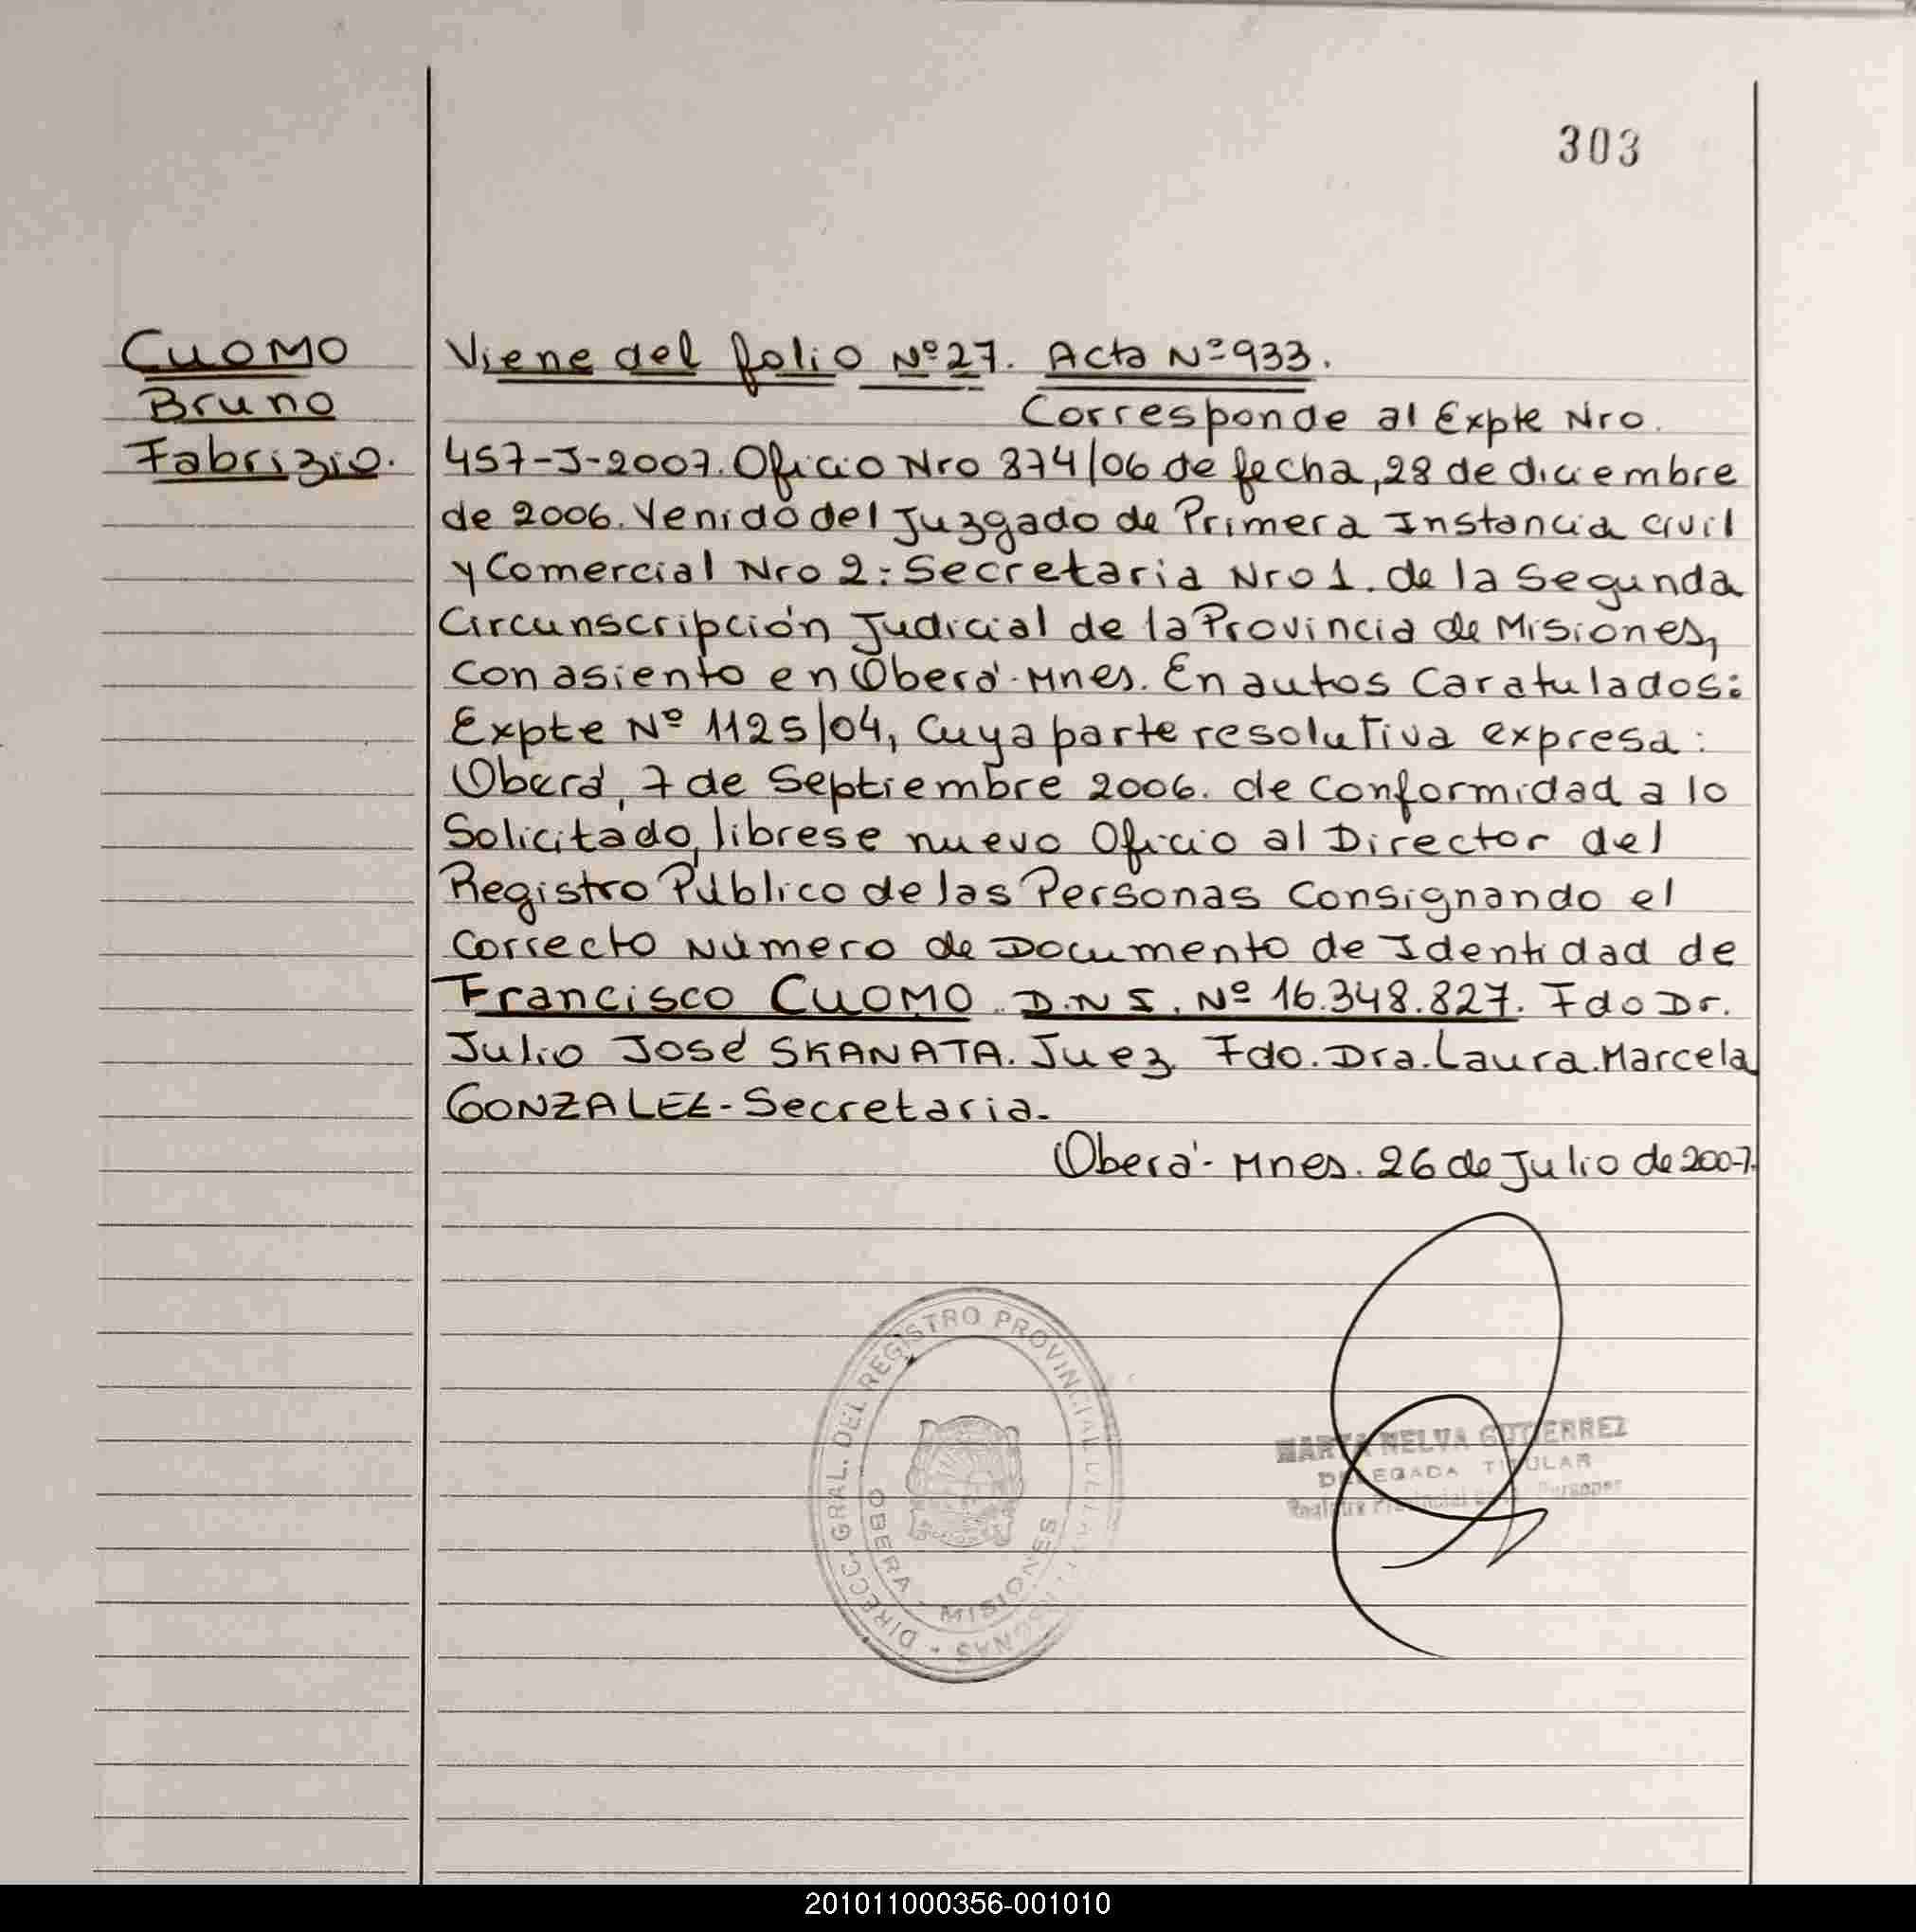 303
CUOMO
Bruno
Fabrizio.
Viene del folio Nº 27. Acta Nº 933.
Corresponde al Expte Nro.
457-J-2007. Oficio Nro 874/06 de fecha, 28 de diciembre
de 2006. Venido del Juzgado de Primera Instancia civil
y Comercial Nro 2: Secretaria Nro 1. de la Segunda
Circunscripción Judicial de la Provincia de Misiones,
con asiento en Oberá-Mnes. En autos Caratulados:
Expte Nº 1125/04, Cuya parte resolutiva expresa:
Oberá, 7 de Septiembre 2006. de Conformidad a lo
Solicitado, librese nuevo Oficio al Director del
Registro Público de las Personas Consignando el
Correcto Número de Documento de Identidad de
Francisco CUOMO. D.N.I. Nº 16.348.827. Fdo Dr.
Julio José SKANATA. Juez Fdo. Dra. Laura. Marcela
GONZALEZ- Secretaria.
Oberá- Mnes. 26 de Julio de 2007.
DIRECC. GRAL. DEL REGISTRO PROVINCIAL DE LAS PERSONAS
OBERA - MISIONES
MARTA NELVA GUTIERREZ
DELEGADA TITULAR
Registro Provincial Personas
201011000356-001010